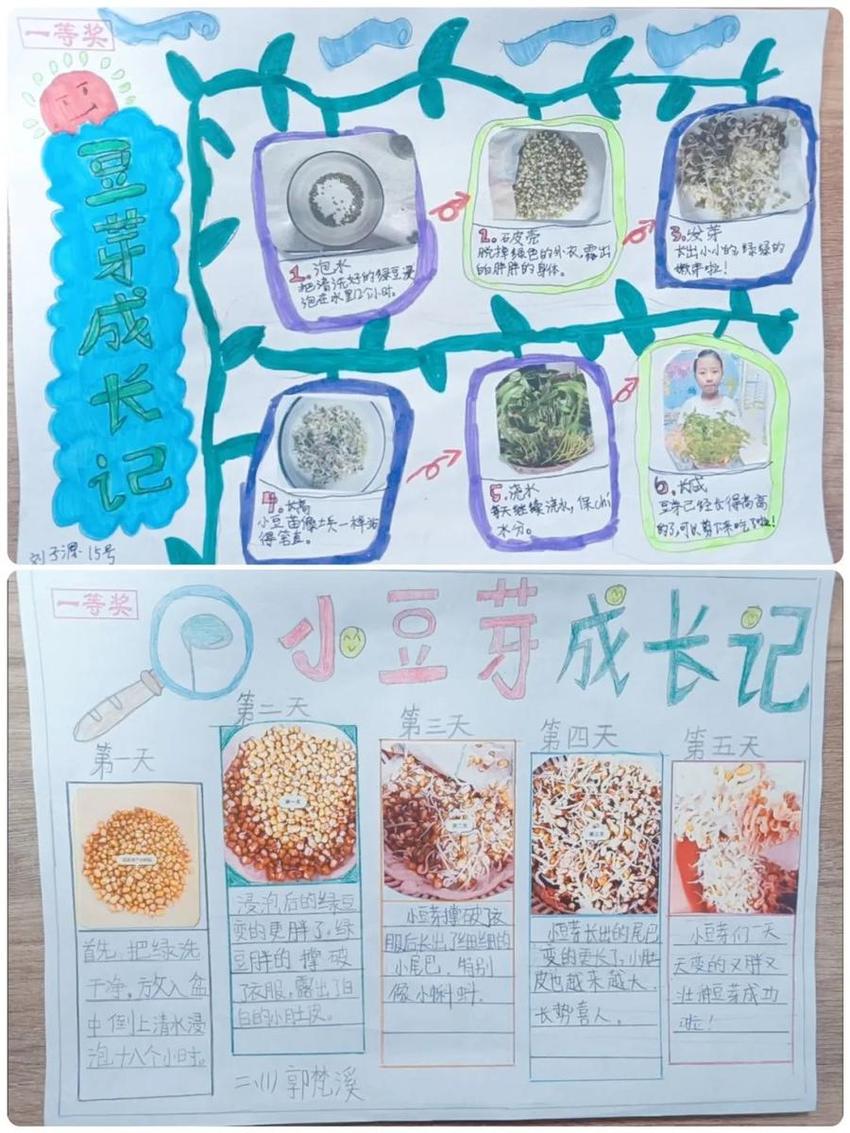 一等奖
豆芽成长记
1.泡水
把清洗好的绿豆浸
泡在水里12个小时。
2.石皮壳
脱掉绿色的外衣,露出
白胖胖的身体。
3.发芽
长出小小的,绿绿的
嫩芽啦!
4.长高
小豆苗像士兵一样站
得笔直。
5.浇水
每天继续浇水,保chí
水分。
6.长成
豆芽已经长得高高
的了,可以剪下来吃了啦!
15号
一等奖
小豆芽成长记
第一天
首先,把绿洗
干净。放入盆
中倒上清水浸
泡十八个小时。
第二天
浸泡后的绿豆
变的更胖了,绿
豆胖的撑破
了衣服,露出了白
白的小肚皮。
第三天
小豆芽撑破了衣
服后长出了细细的
小尾巴,特别
像小蝌蚪。
第四天
小豆芽长出的尾巴
变的更长了,小肚
皮也越来越大,
长势喜人。
第五天
小豆芽们一天
天变的又胖又
壮,发豆芽成功
啦!
二、(1) 郭梵溪